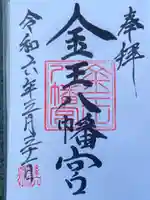 奉拝
金王八幡宮
令和六年三月三十一日